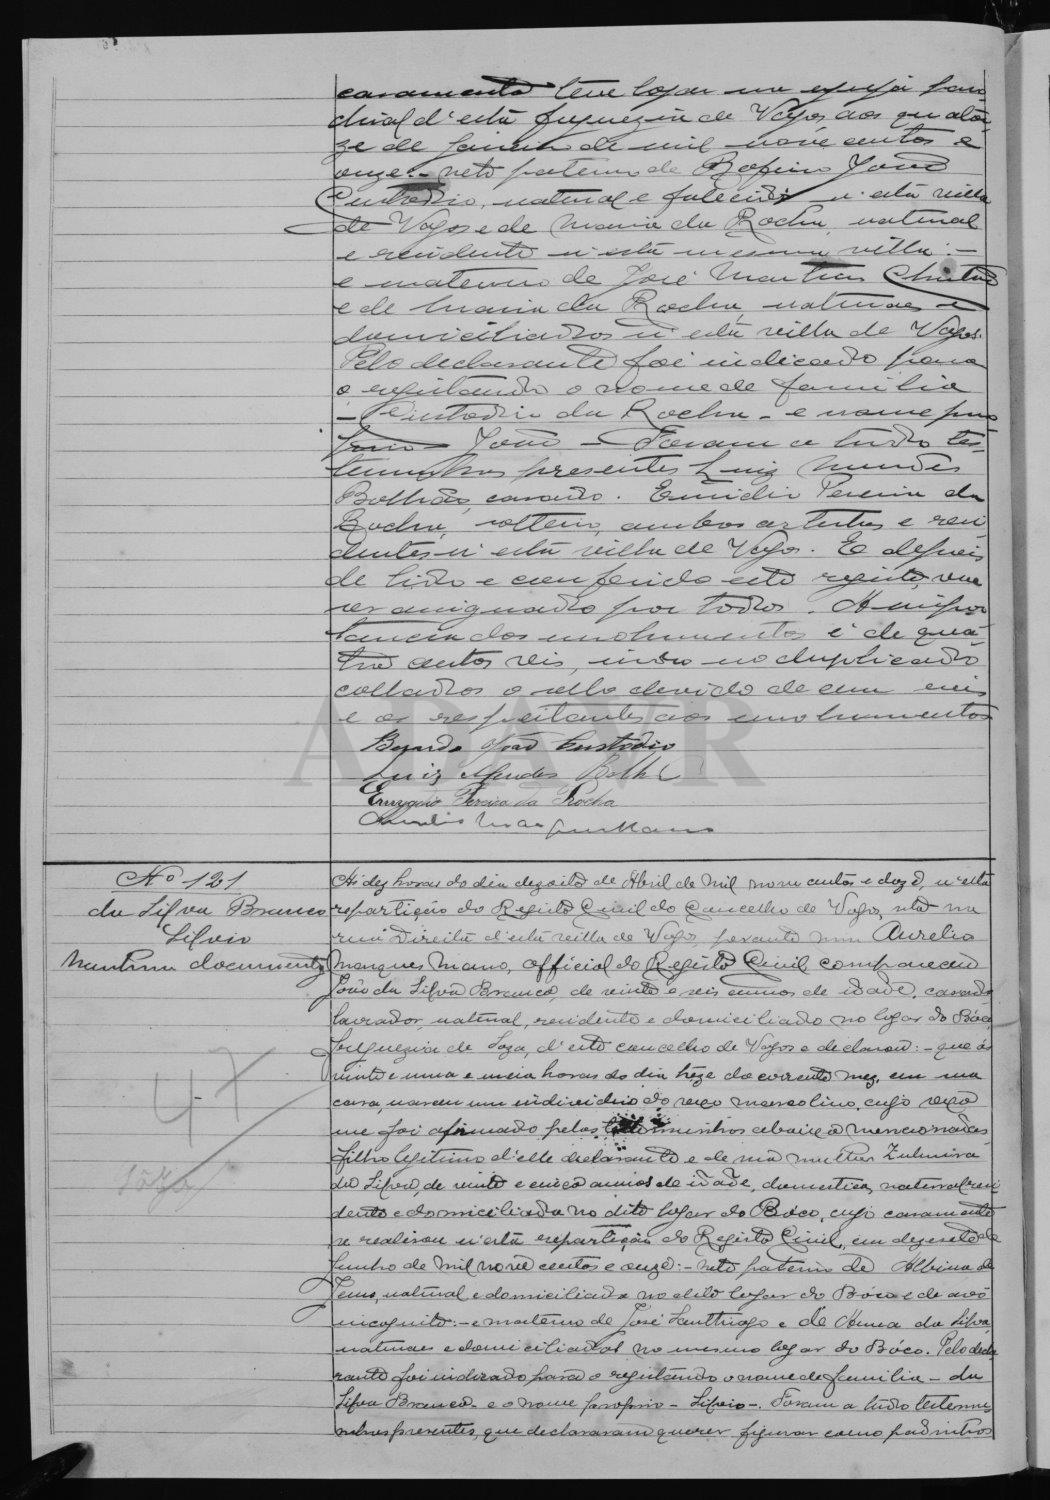 casamento teve logar na egreja paro-
chial d'esta freguezia de Vagos aos quator-
ze de Janeiro de mil nove centos e
onze:- neto paterno de Rofino João
Custodio, natural e falecido n'esta villa
de Vagos e de Maria da Rocha, natural
e residente n'esta mesma villa:-
e materno de José Martins
e de Maria da Rocha, naturaes e
domiciliados n'esta villa de Vagos.
Pelo declarante foi indicado para
o registando o nome de familia
- Custodio da Rocha - e nome pro-
prio - João - Foram a tudo tes-
temunhas presentes Luiz Mendes
Bolhão, casado. Emidio Pereira da
Rocha, solteiro, ambos artistas e resi-
dentes n'esta villa de Vagos. E depois
de lido e conferido este registo, vae
ser assignado por todos. A impor-
tancia dos emolumentos é de qua-
tro centos reis, indo no duplicado
collados o sello devido de cem reis
e os respeitantes aos emolumentos
João Custodio
Luiz Mendes Bolhão
Emygdio Pereira da Rocha
Aurelio Marques Mano
Nº 121
da Silva Branco
Silvio
Nenhum documento
47
Sôza
Ás dez horas do dia dezoito de Abril de mil nove centos e doze, n'esta
repartição do Registo Civil do Concelho de Vagos, sita na
rua Direita d'esta villa de Vagos, perante mim Aurelio
Marques Mano, official do Registo Civil compareceu
João da Silva Branco, de vinte e seis annos de idade, casado
lavrador, natural, residente e domiciliado no logar do Bóco,
freguezia de Soza, d'este concelho de Vagos e declarou:- que ás
vinte e uma e meia horas do dia treze do corrente mez, em sua
casa, nasceu um individuo do sexo masculino, cujo sexo
me foi afirmado pelas testemunhas abaixo mencionadas
filho legitimo d'elle declarante e de sua mulher Zulmira
da Silva, de vinte e cinco annos de idade, domestica, natural resi-
dente e domiciliada no dito logar do Bóco, cujo casamento
se realisou n'esta repartição do Registo Civil, em dezesete de
Junho de mil nove centos e onze:- neto paterno de Albina de
Jesus, natural e domiciliada no dito logar do Bóco e de avô
incognito:- e materno de José Santhiago e de Anna da Silva,
naturaes e domiciliados no mesmo logar do Bóco. Pelo decla-
rante foi indicado para o registando o nome de familia - da
Silva Branco - e o nome proprio - Silvio -. Foram a tudo testemu-
nhas presentes, que declararam querer figurar como padrinhos
ADAVR